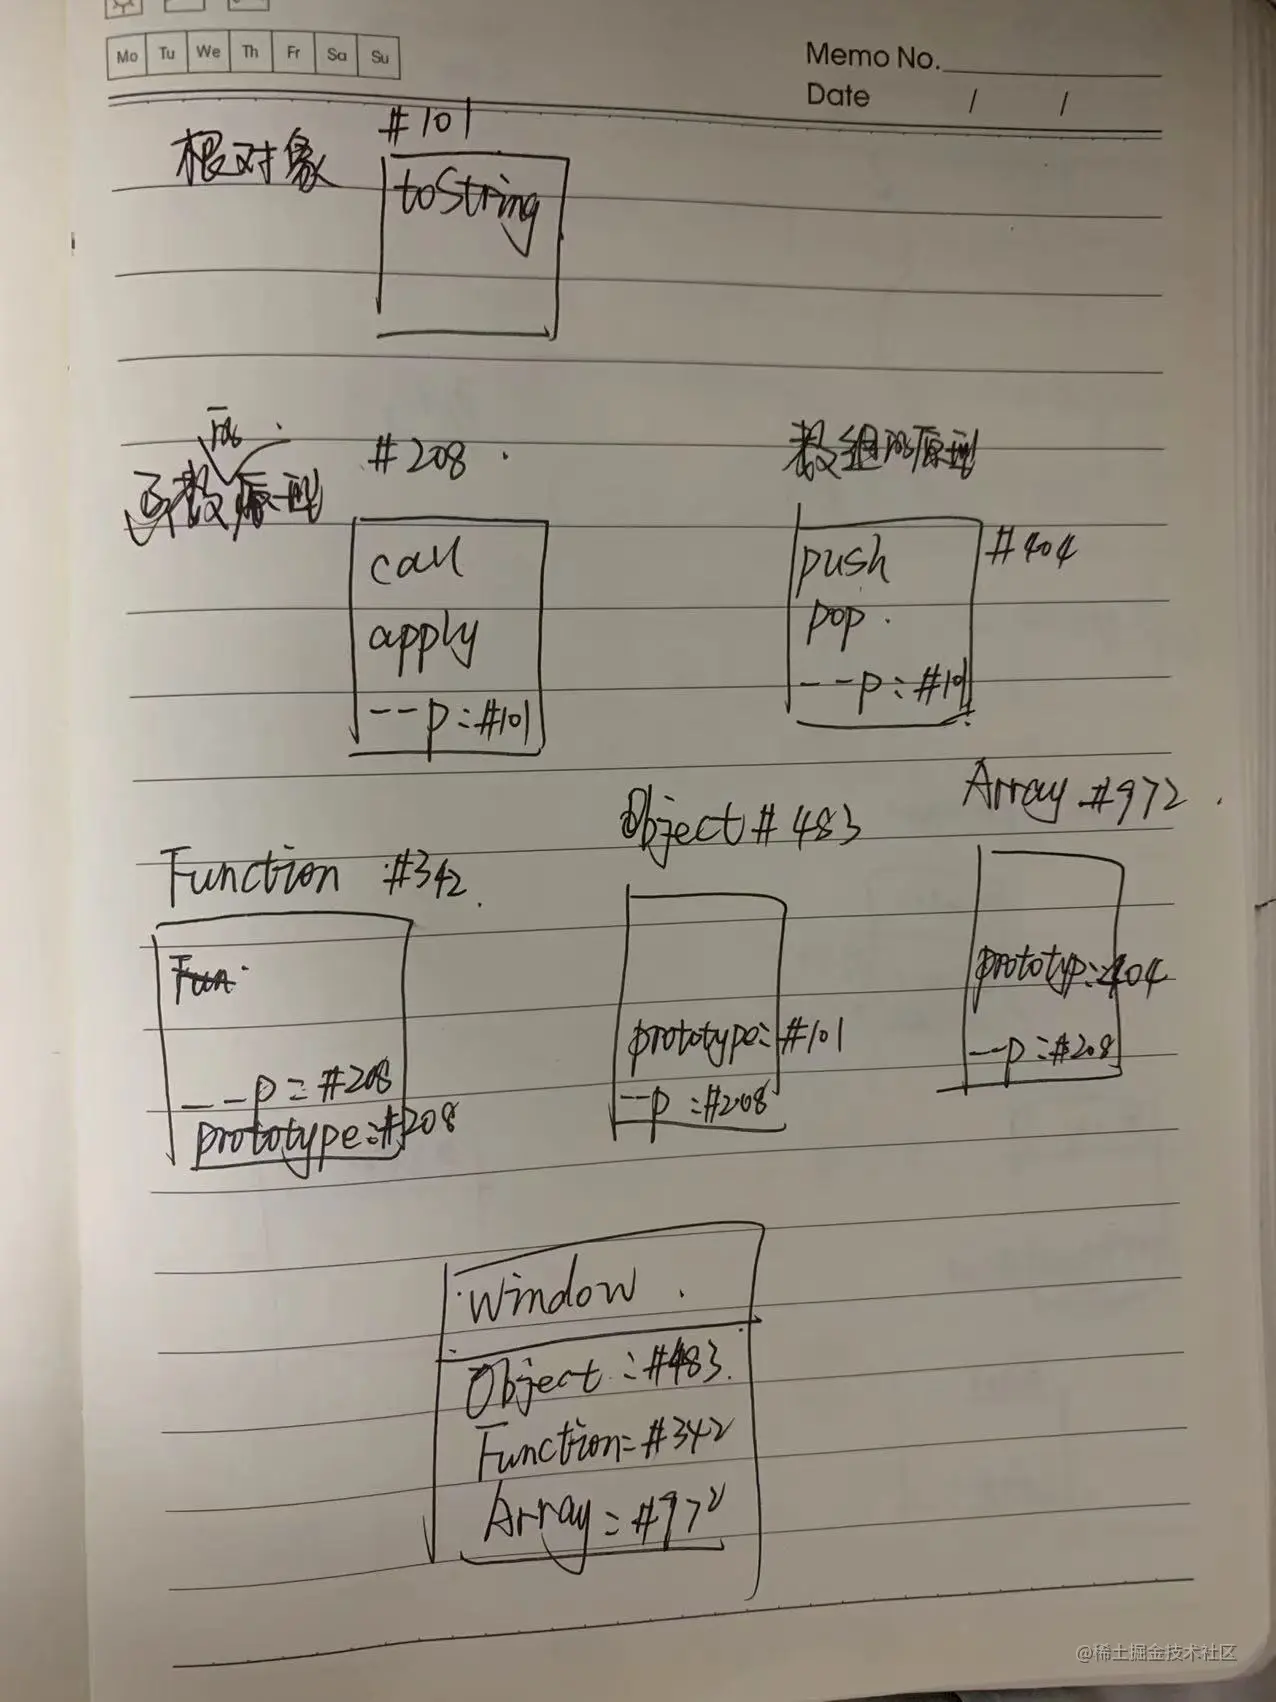 Mo Tu We Th Fr Sa Su
Memo No.
Date / /
根对象
#101
toString
的
函数原型
#208
call
apply
--p:#101
数组的原型
#404
push
pop
--p:#101
Function #342
Fun
--p=#208
prototype:#208
Object #483
prototype:#101
--p:#208
Array #972
prototyp:404
--p:#208
window
Object:#483
Function=#342
Array=#972
@稀土掘金技术社区